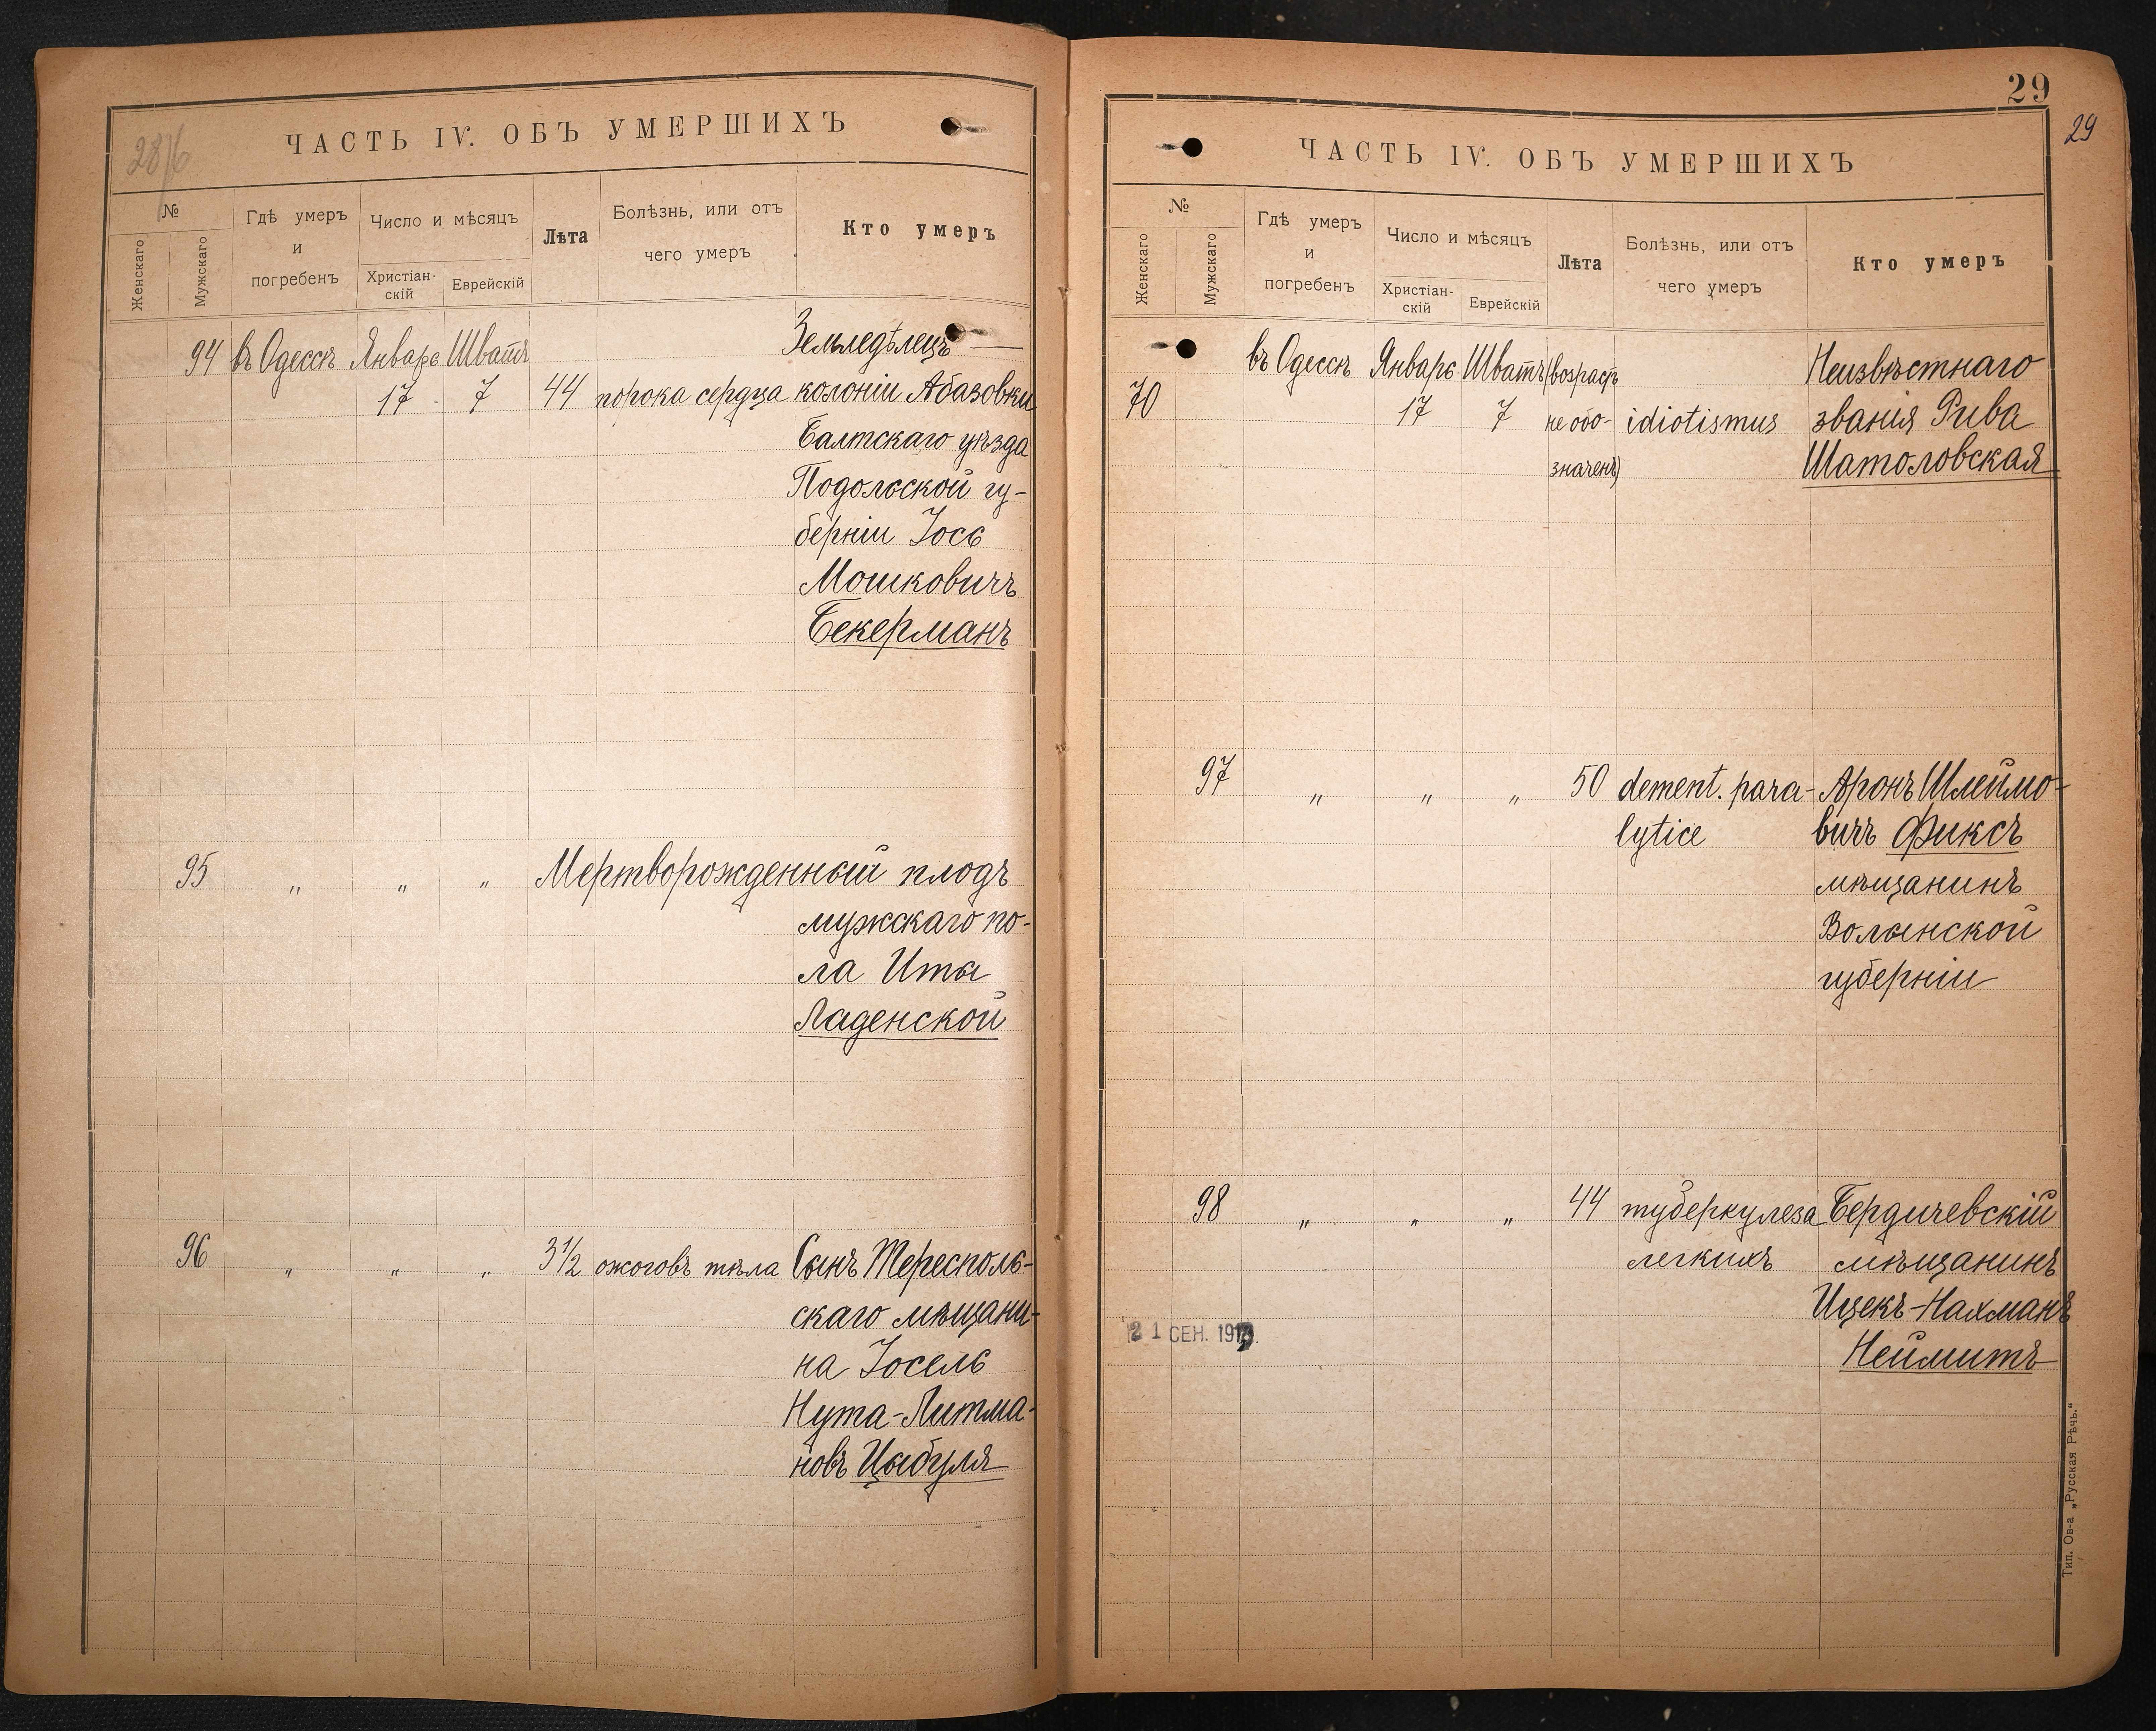 28/b
ЧАСТЬ IV. ОБЪ УМЕРШИХЪ
№
Женскаго
Мужскаго
Гдѣ умеръ
и
погребенъ
Число и мѣсяцъ
Христіан-
скій
Еврейскій
Лѣта
Болѣзнь, или отъ
чего умеръ
Кто умеръ
94 въ Одессѣ Январь Шватъ Земледѣлецъ
17 7 44 порока сердца колоніи Абазовки
Балтскаго уѣзда
Подольской гу-
берніи Іось
Мошковичъ
Бекерманъ
95 " " " Мертворожденный плодъ
мужскаго по-
ла Иты
Ладенской
96 " " " 3½ ожоговъ тѣла Сынъ Тересполь-
скаго мѣщани-
на Іосель
Нута-Литма-
новъ Цыбуля
29
29
ЧАСТЬ IV. ОБЪ УМЕРШИХЪ
№
Женскаго
Мужскаго
Гдѣ умеръ
и
погребенъ
Число и мѣсяцъ
Христіан-
скій
Еврейскій
Лѣта
Болѣзнь, или отъ
чего умеръ
Кто умеръ
въ Одессѣ Январь Шватъ (возрастъ Неизвѣстнаго
70 17 7 не обо- idiotismus званія Рива
значенъ) Шатоловская
97 " " " 50 dement. para- Аронъ Шлеймо-
lytice вичъ Фиксъ
мѣщанинъ
Волынской
губерніи
98 " " " 44 туберкулеза Бердичевскій
легкихъ мѣщанинъ
Ицекъ-Нахманъ
Неймитъ
21 СЕН. 191
Тип. Ов-а „Русская Рѣчь.“